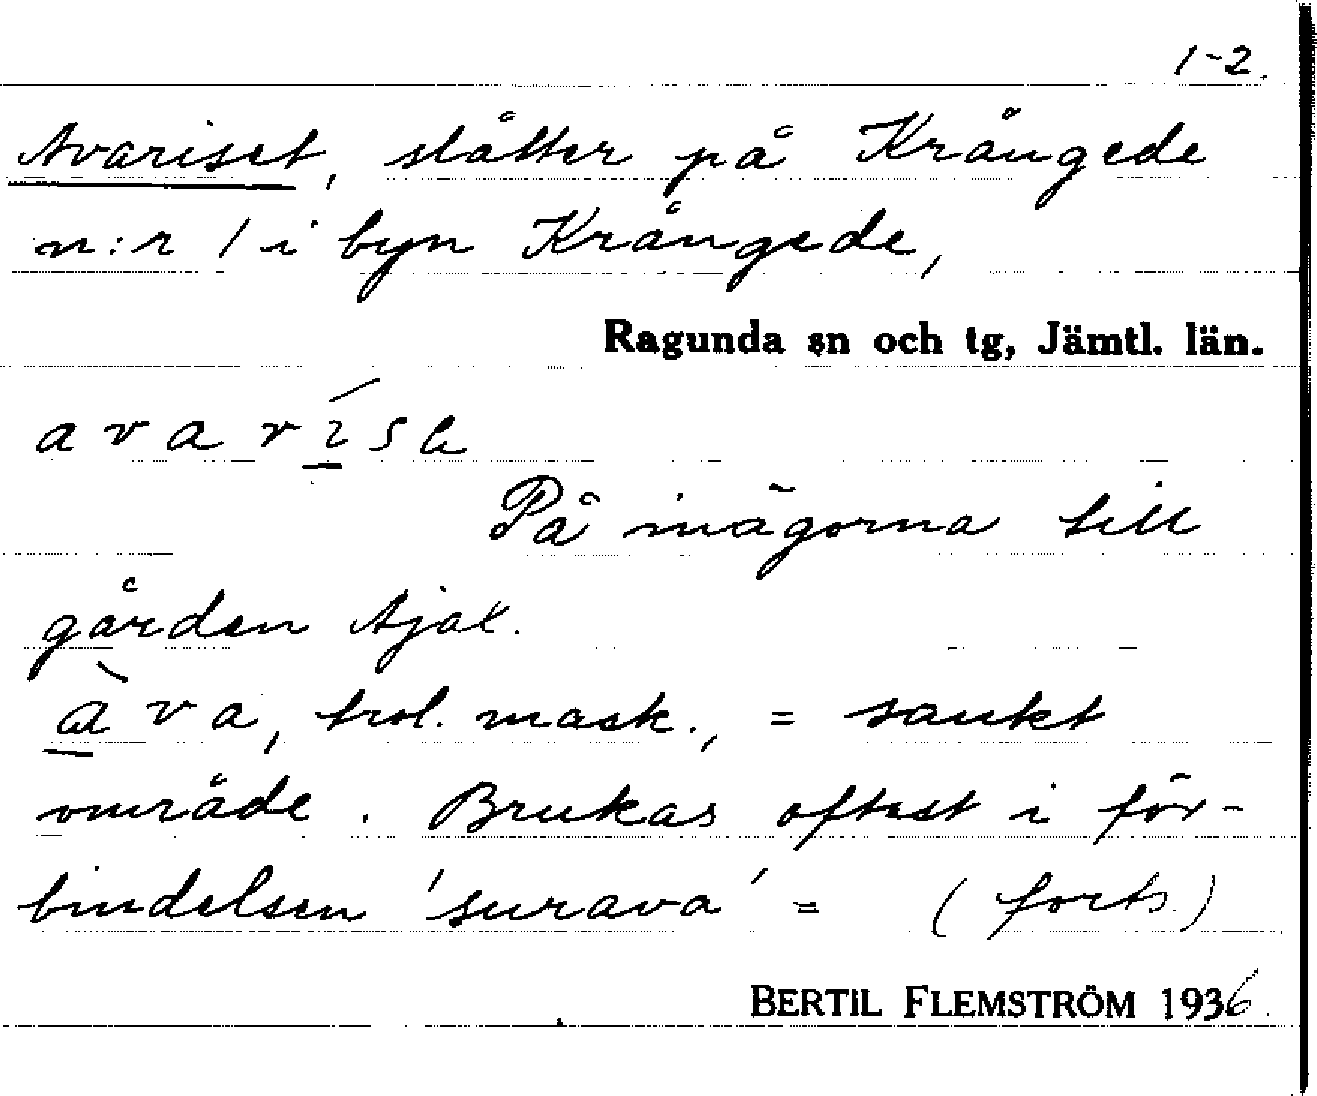 1-2.
Avariset, slåtter på Krångede
n:r 1 i byn Krångede,
Ragunda sn och tg, Jämtl. län.
På inägorna till
gården Ajax.
àva, trol. mask., = sankt
område. Brukas oftast i för-
bindelsen 'surava' = (forts.)
BERTIL FLEMSTRÖM 1936.